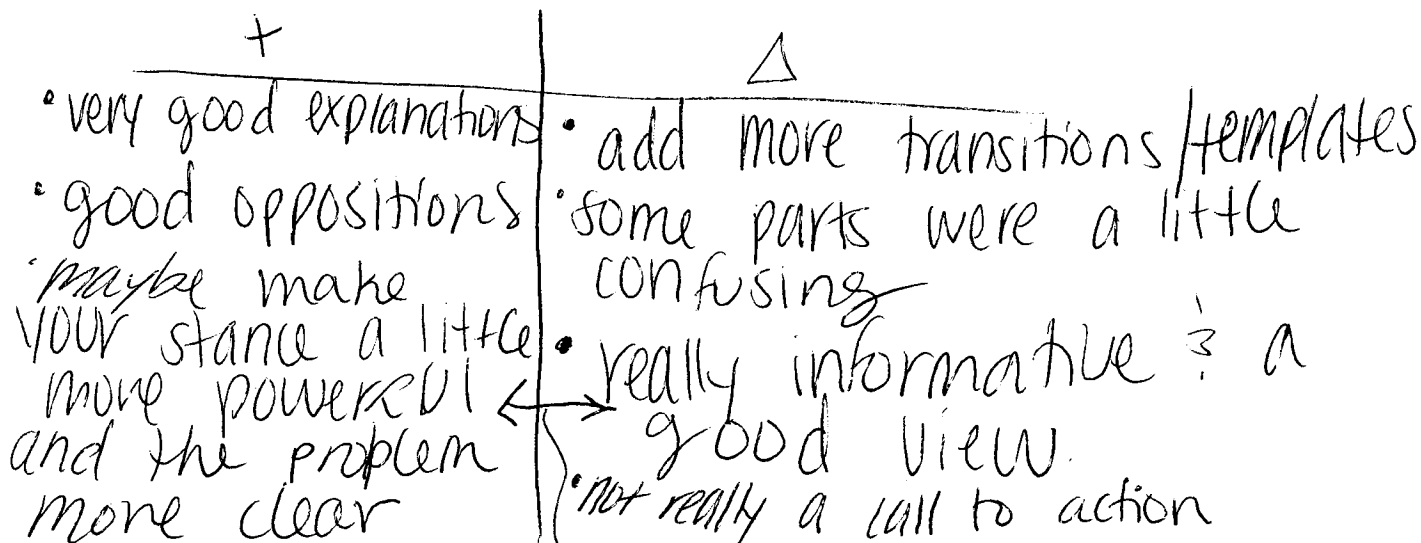 +
• very good explanations
• good oppositions
• maybe make
your stance a little
more powerful
and the problem
more clear
Δ
• add more transitions/templates
• some parts were a little
confusing
• really informative & a
good view.
• not really a call to action